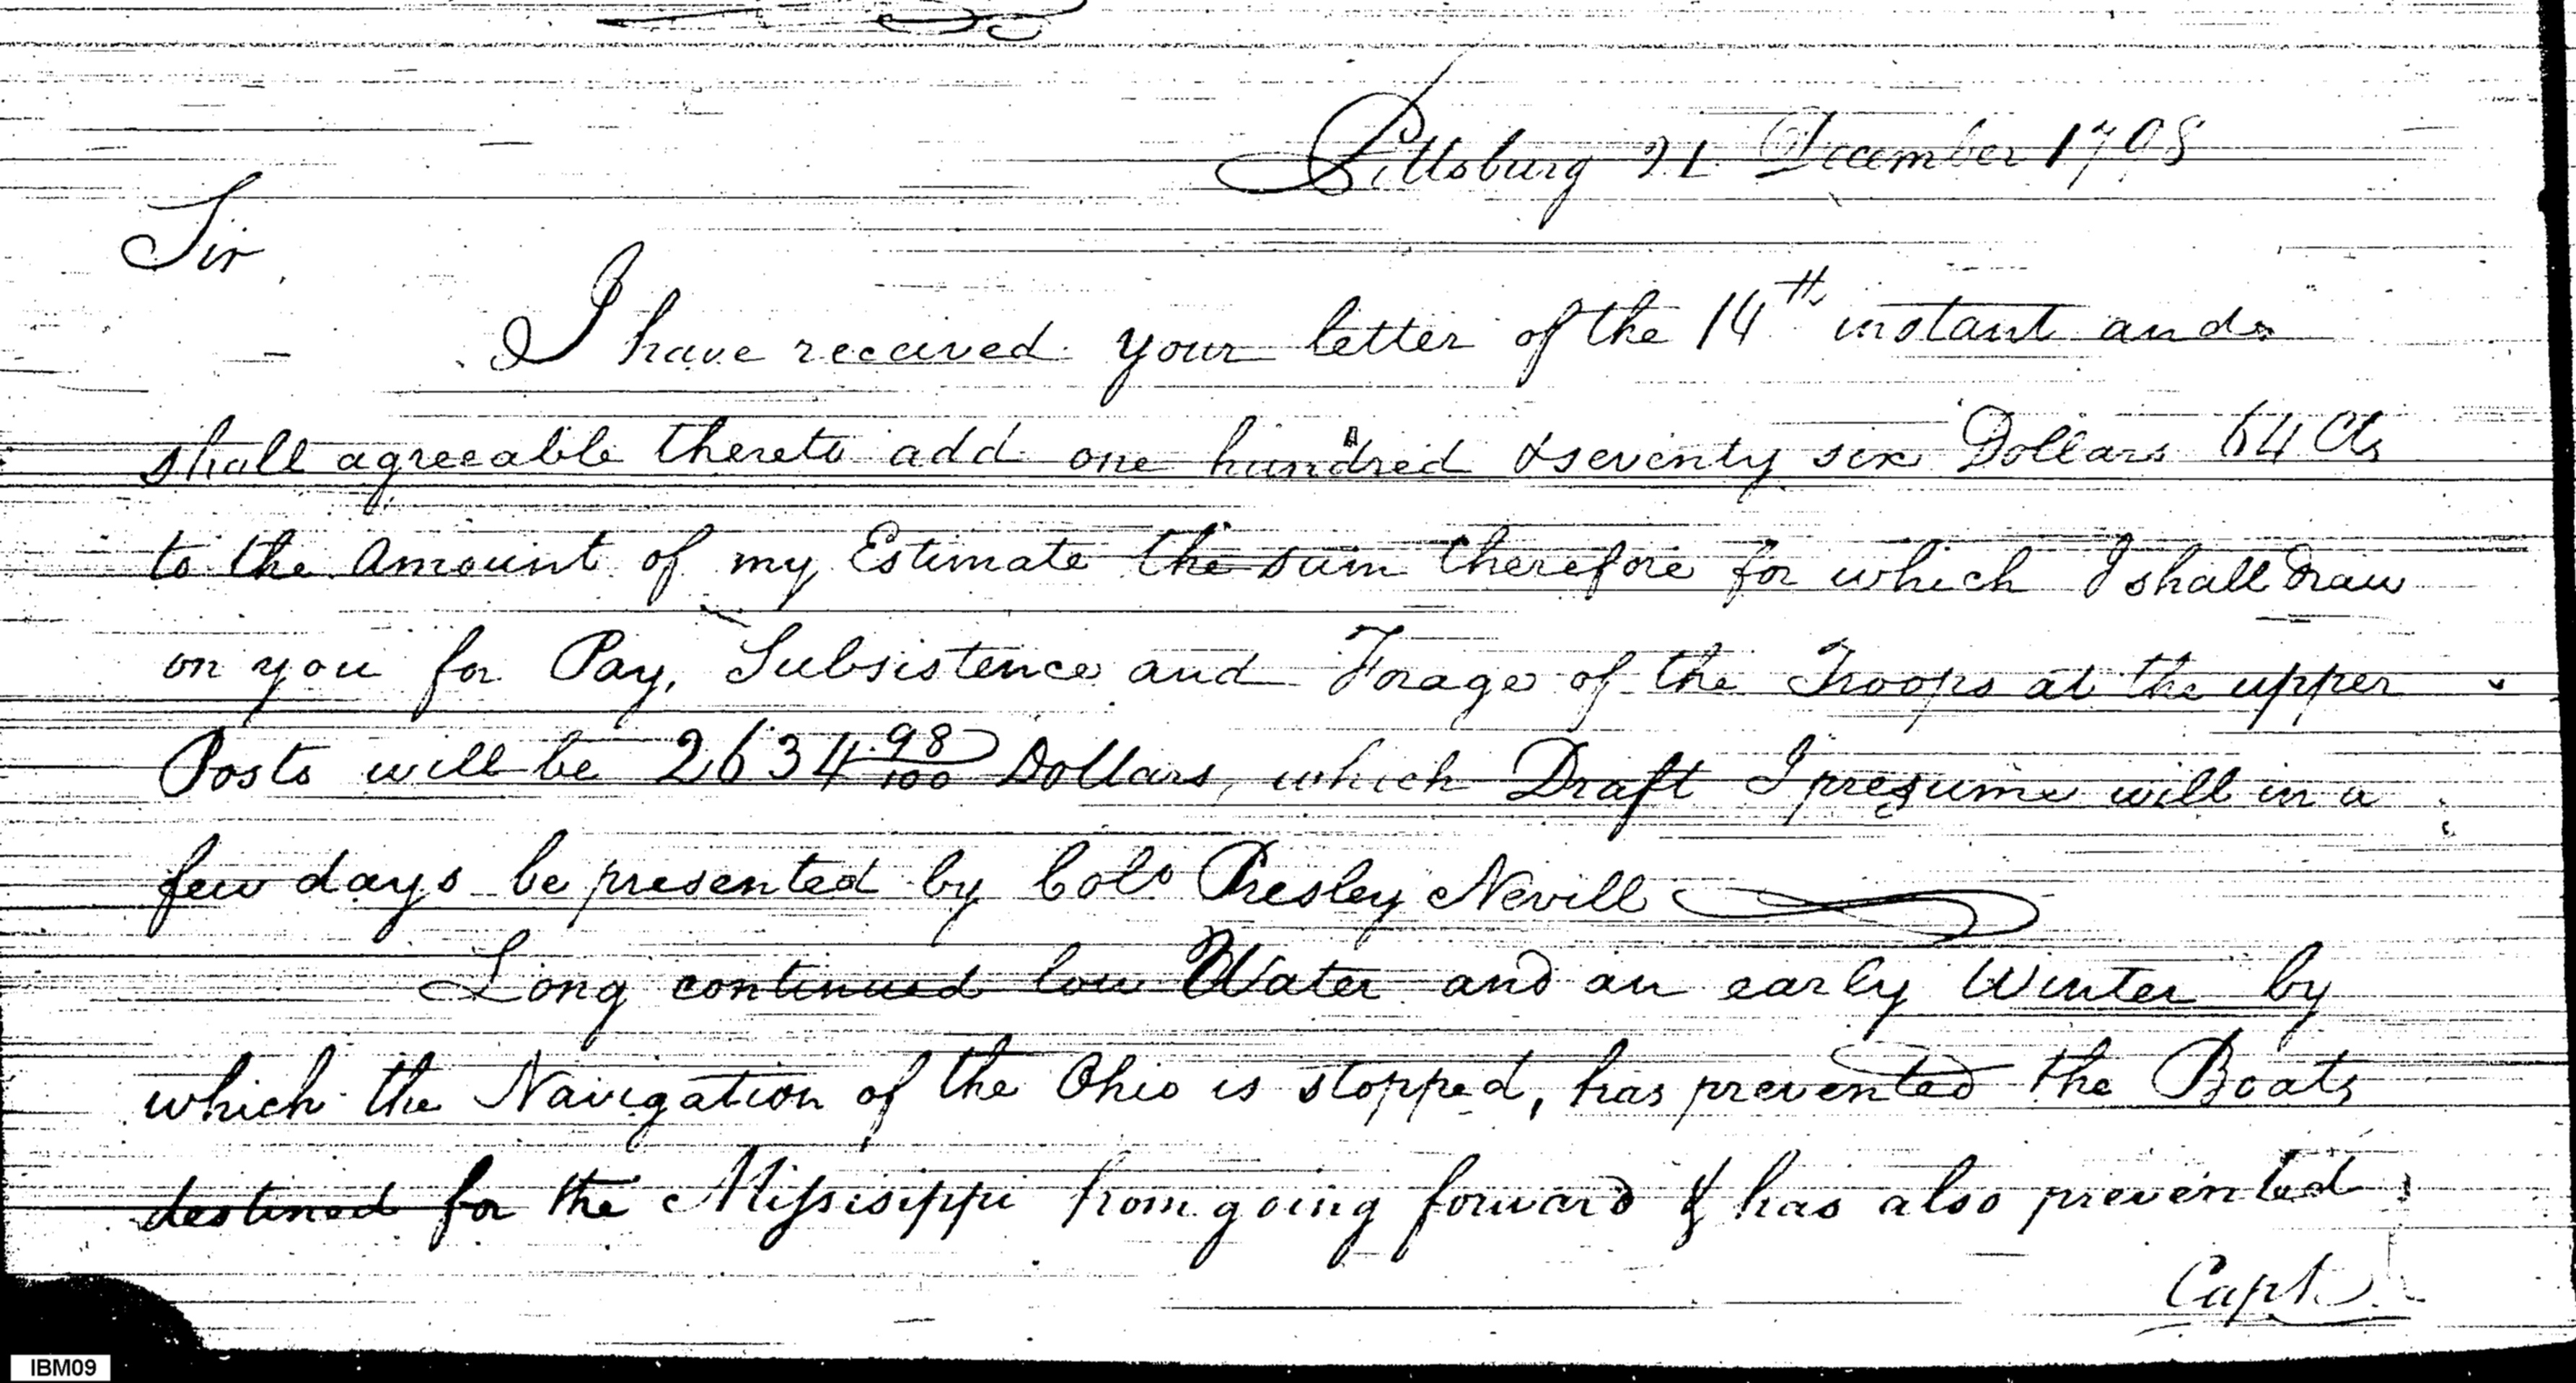 Pittsburg 21 December 1798
Sir
I have received your letter of the 14th instant and
shall agreeable thereto add one hundred & seventy six Dollars 64 Cts
to the Amount of my Estimate the sum therefore for which I shall draw
on you for Pay, Subsistence and Forage of the Troops at the upper
Posts will be 2634 98/100 Dollars, which Draft I presume will in a
few days be presented by Colo Presley Nevill
Long continued low Water and an early Winter by
which the Navigation of the Ohio is stopped, has prevented the Boats
destined for the Missisippi from going forward & has also prevented
Capt
IBM09